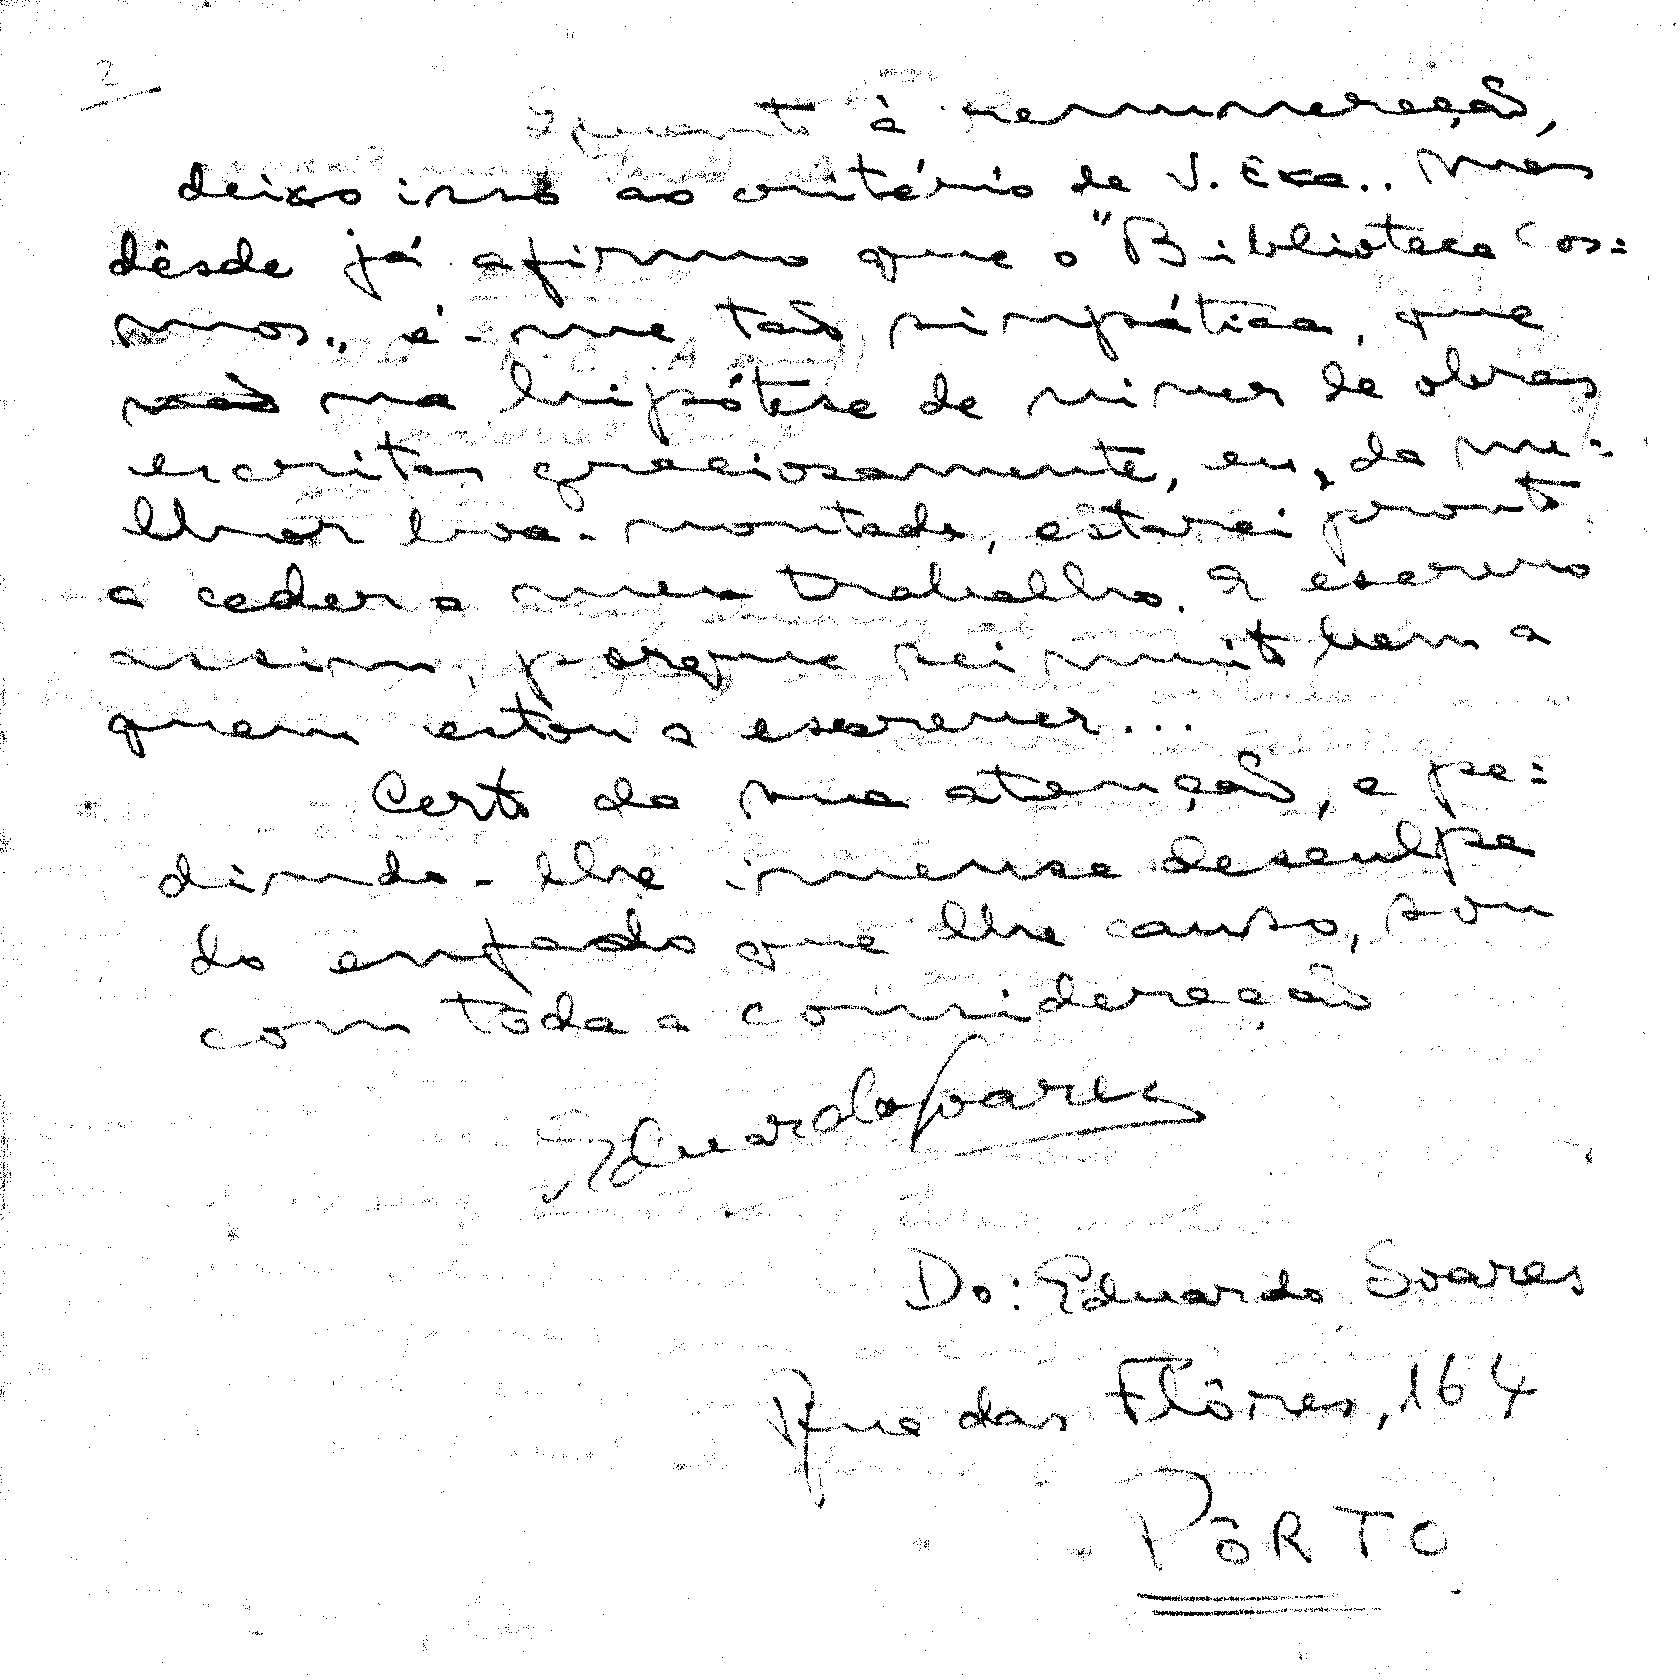 2
Quanto à remuneração,
deixo isso ao critério de V. Exa.. Mas
dêsde já afirmo que o "Biblioteca Cos=
mos„ é-me tão simpática, que
na hipótese de viver de obras
escritas graciosamente, eu, da me=
lhor boa-vontade, estarei pronto
a ceder o meu trabalho. E escrevo
assim, porque sei muito bem a
quem estou a escrever...
Certo da sua atenção, e pe=
dindo-lhe imensa desculpa
do enfado que lhe causo, sou
com tôda a consideração
Eduardo Soares
Do: Eduardo Soares
Rua das Flôres, 164
PÔRTO